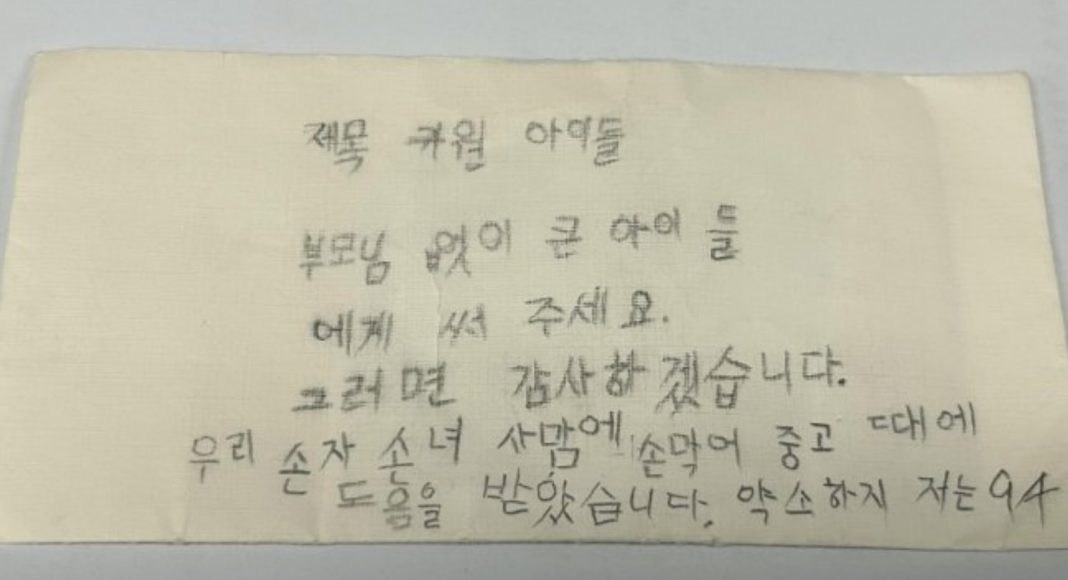 제목 귀월 아이들
부모님 없이 큰 아이 들
에게 써 주세요.
그러면 감사하겠습니다.
우리 손자 손녀 사맘에 손막어 중고 때에
도음을 받았습니다. 약소하지 저는 94